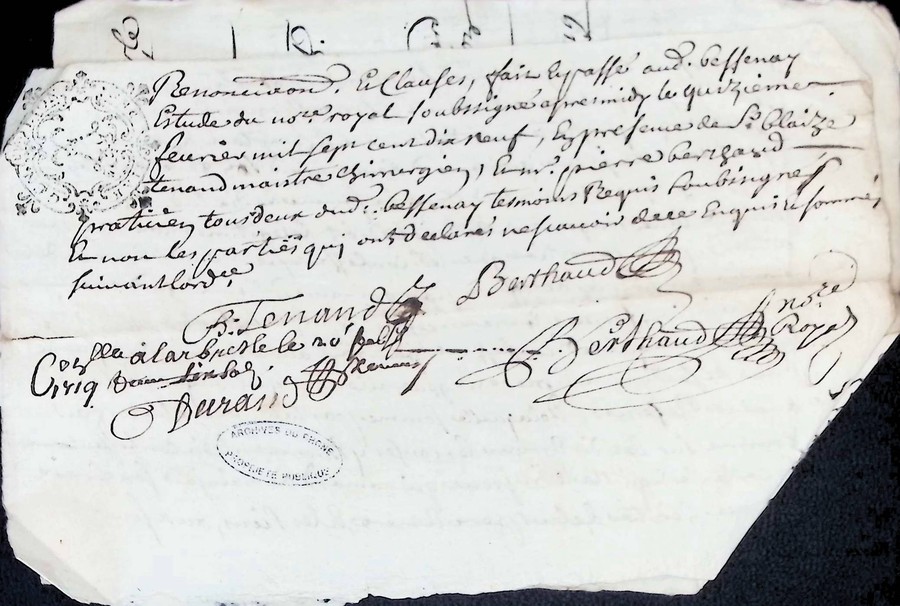 Renonciaon.s. & Clauses, fait & passé aud. bessenay
Estude du no.re royal soubsigné apres midy le quizieme
fevrier mil sept cent dix neuf, En presence de S.r Blaize
tenand maistre chirurgien, & m.r pierre berthaud
praticien tous deux dud. bessenay tesmoins Requis soubsignes
& non les parties qui ont declarés ne scavoir de ce Enquis & sommés
suivant lord.ce
B. Tenand
Berthaud
Berthaud no.re Royal
Con.llé a larbresle le 20.e
1719
Durand
ARCHIVES DU RHONE
PROPRIETE PUBLIQUE